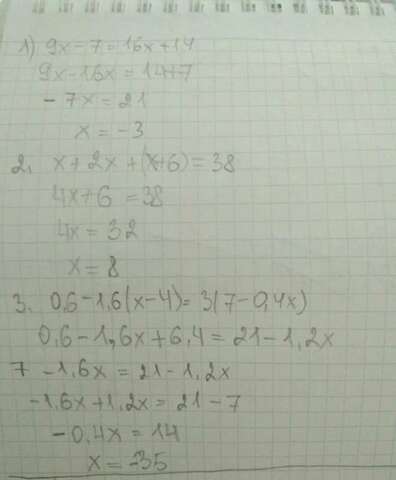 1) 9x-7=16x+14
9x-16x=14+7
-7x=21
x=-3
2. x+2x+(x+6)=38
4x+6=38
4x=32
x=8
3. 0,6-1,6(x-4)=3(7-0,4x)
0,6-1,6x+6,4=21-1,2x
7-1,6x=21-1,2x
-1,6x+1,2x=21-7
-0,4x=14
x=-35